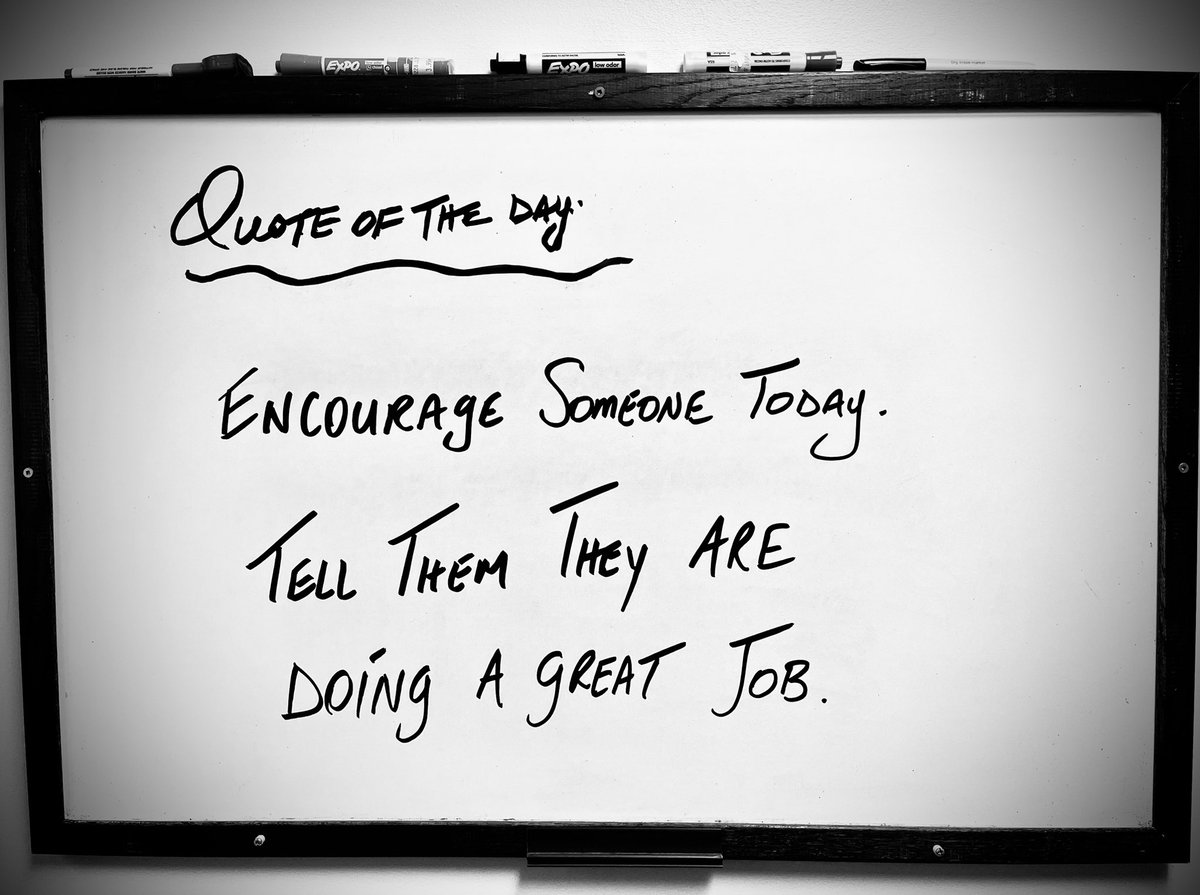 EXPO
EXPO low odor
QUOTE OF THE DAY.
ENCOURAGE SOMEONE TODAY.
TELL THEM THEY ARE
DOING A GREAT JOB.